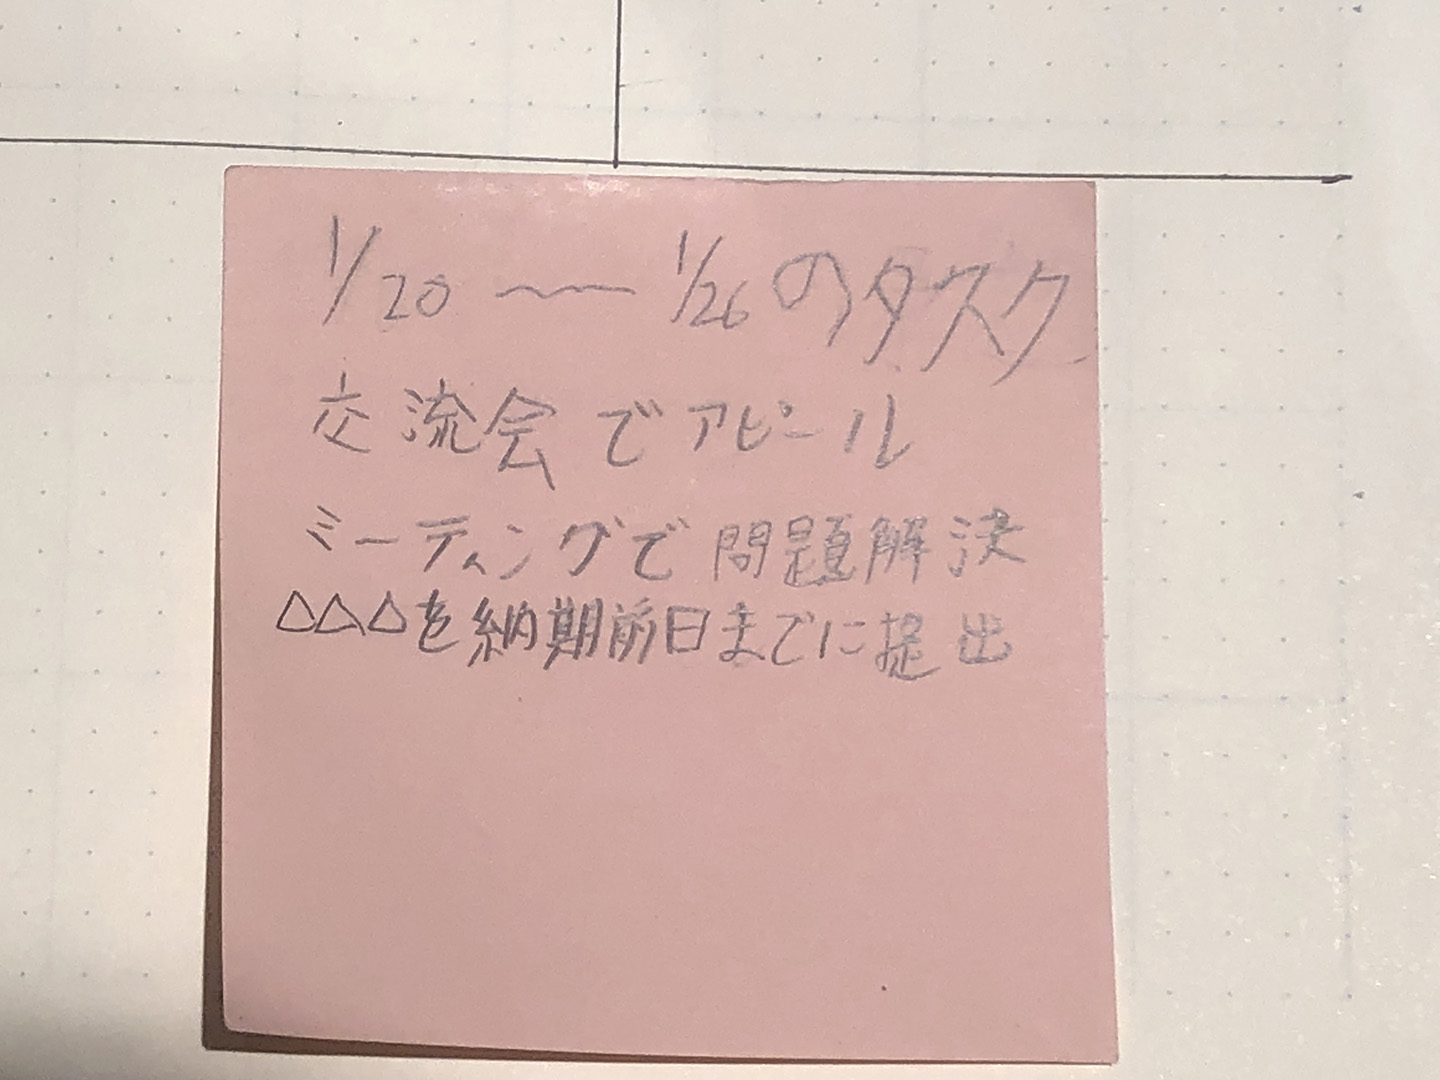 1/20〜1/26のタスク
交流会でアピール
ミーティングで問題解決
△△△を納期前日までに提出